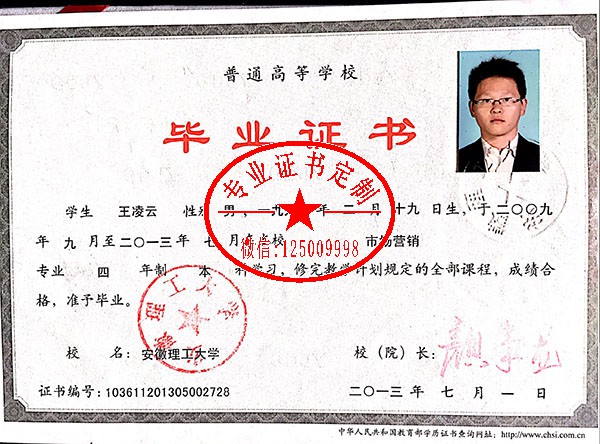 普通高等学校
毕业证书
专业证书定制
学生 王凌云 性别 男，一九 年 二 月 十九 日生，于二〇〇九
年 九 月至二〇一三年 七 月在 校 市场营销
微信:125009998
专业 四 年制 本 科学习，修完教学计划规定的全部课程，成绩合
格，准予毕业。
安徽理工大学
校 名：安徽理工大学 校（院）长：
证书编号：103611201305002728 二〇一三 年 七 月 一 日
中华人民共和国教育部学历证书查询网址：http://www.chsi.com.cn